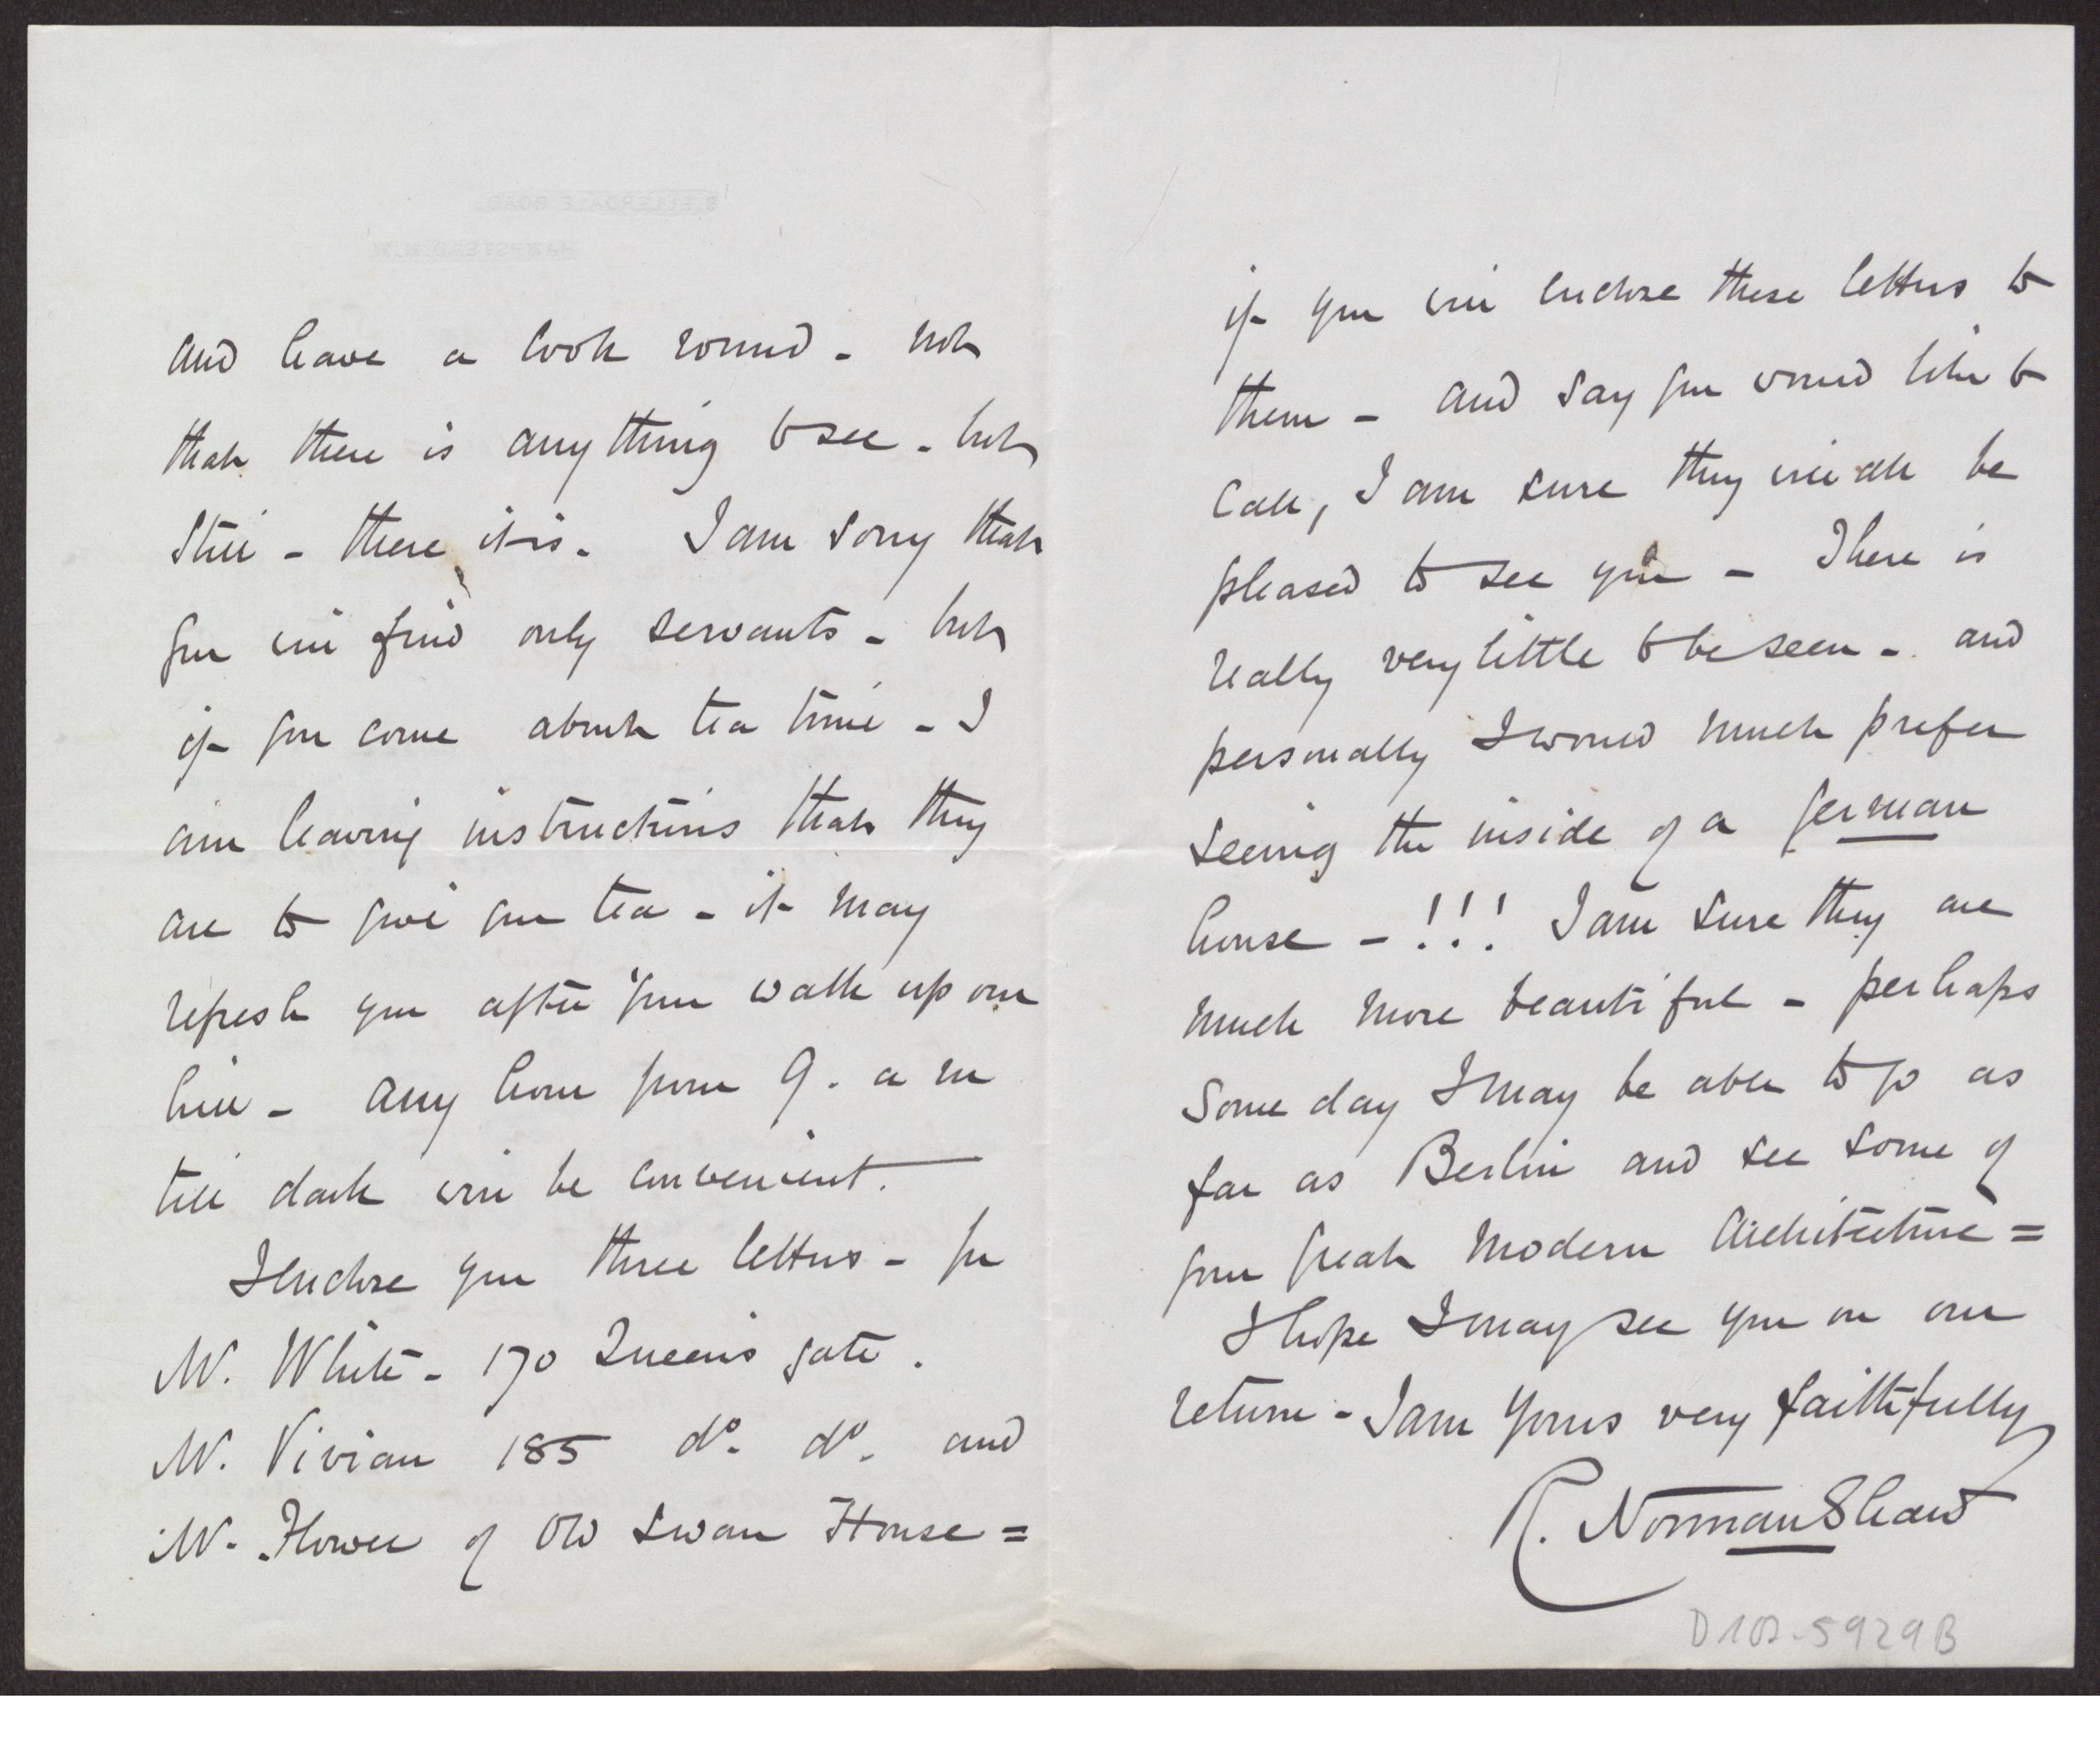 and have a look round - not
that there is any thing to see - but
still - there it is. I am sorry that
you will find only servants - but
if you come about tea time - I
am leaving instructions that they
are to give you tea - it may
refresh you after your walk up our
hill - any hour from 9. a m
till dark will be convenient.
I enclose you three letters - for
Mr. White - 170 Queen's gate.
Mr. Vivian 185 do. do. and
Mr. Flower of Old Swan House =
if you will enclose these letters to
them - and say you would like to
call, I am sure they will all be
pleased to see you - There is
really very little to be seen - and
personally I would much prefer
seeing the inside of a german
house - !!! I am sure they are
much more beautiful - perhaps
some day I may be able to go as
far as Berlin and see some of
your great modern Architecture =
I hope I may see you on our
return - I am yours very faithfully
R. Norman Shaw
D102-5929B